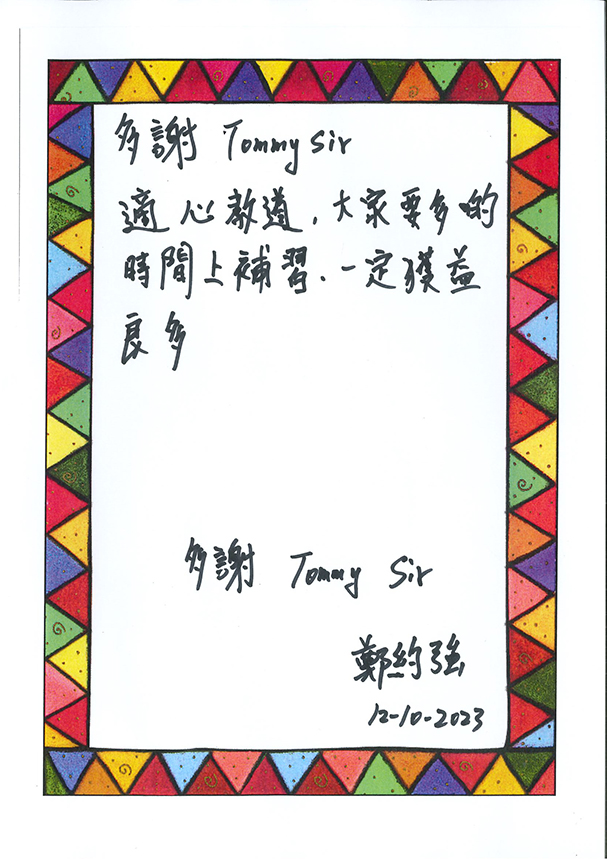 多謝 Tommy Sir
適心教道，大家要多啲
時間上補習.一定獲益
良多
多謝 Tommy Sir
鄭約強
12-10-2023